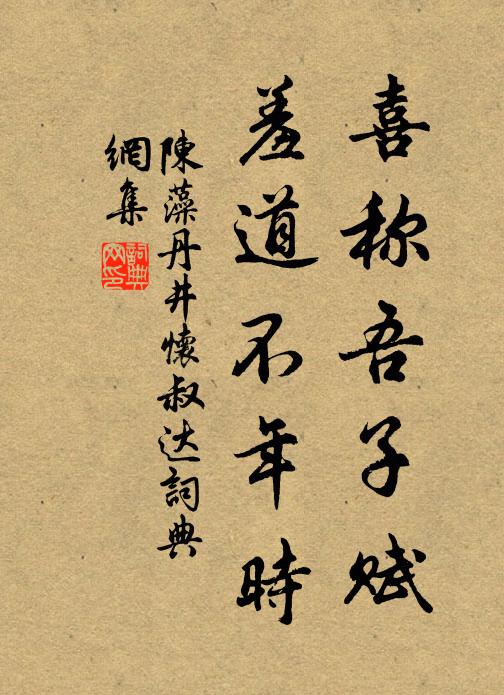 喜称吾子赋
羞道不年時
陳藻丹井懷叔达詞典
網集
詞典網印